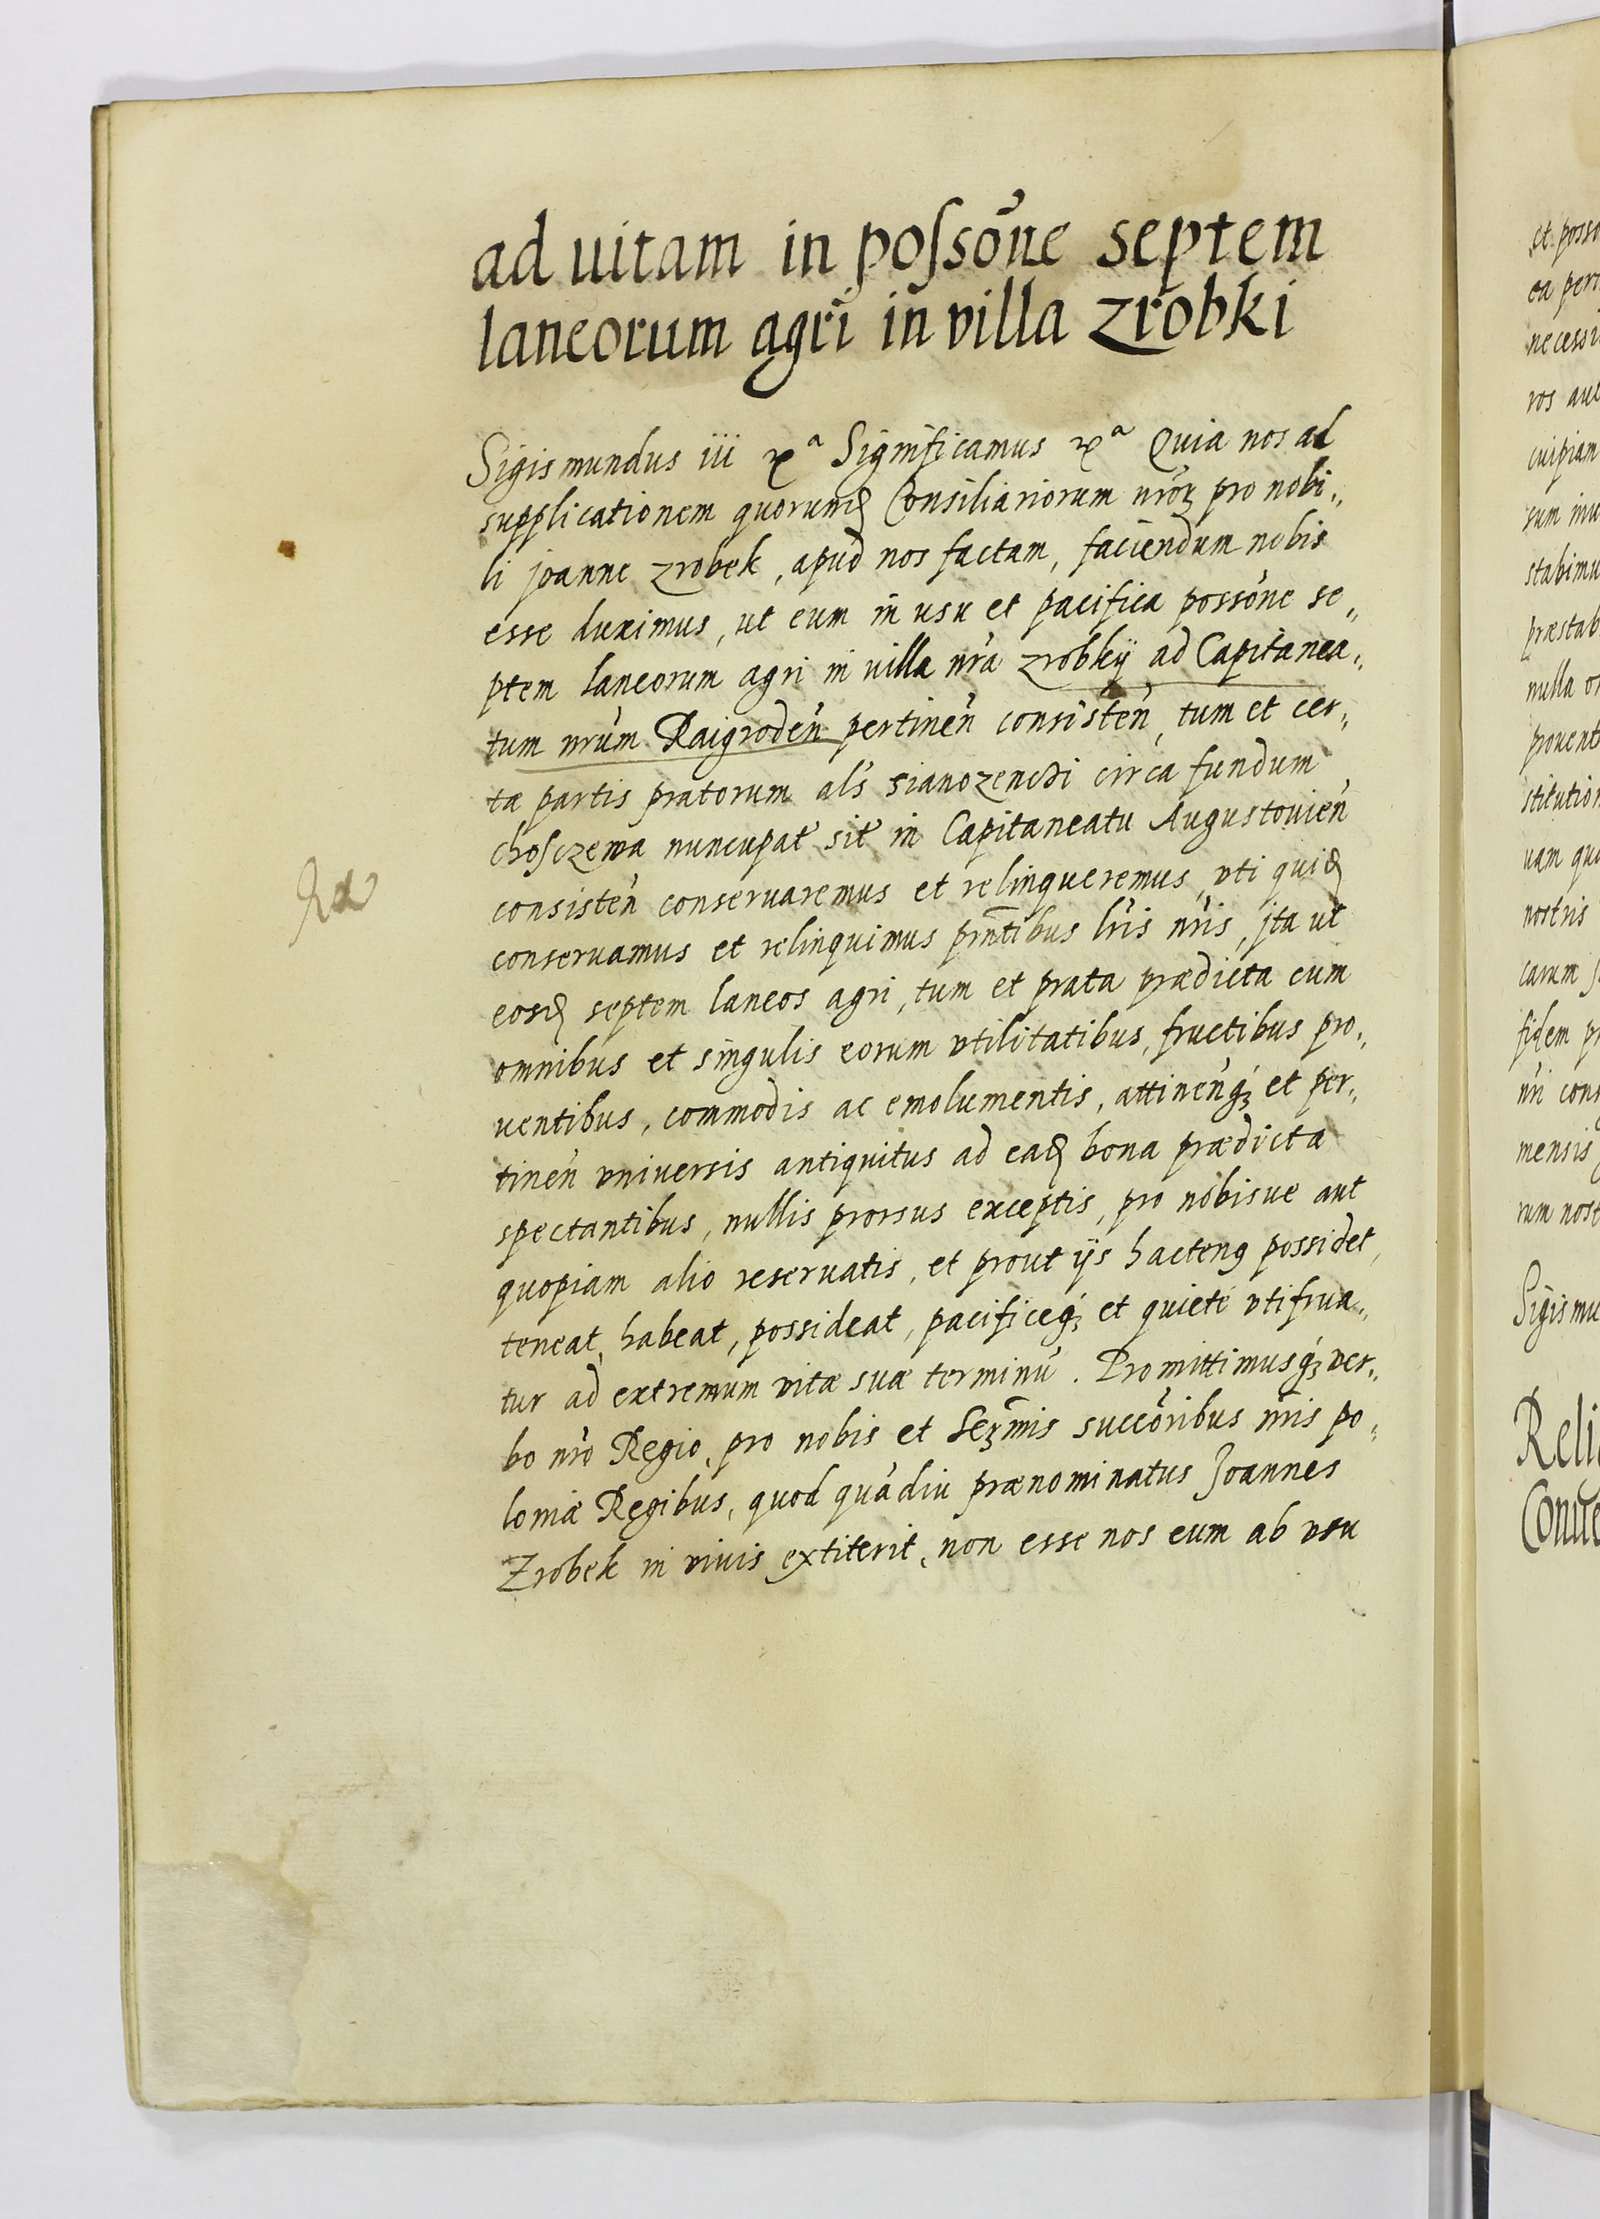 ad uitam in possōne septem
laneorum agri in villa Zrobki
Sigismundus iii Significamus Quia nos ad
supplicationem quorumd Consiliariorum nrōꝝ pro nobi„
li Joanne Zrobek, apud nos factam, faciendum nobis
esse duximus, ut eum in usu et pacifica possōne se„
ptem laneorum agri in uilla nrā Zrobkÿ ad Capitanea„
tum nrūm Raigrodeñ pertineñ consisteñ, tum et cer„
tæ partis pratorum als sianozenchi circa fundum
chosczewa nuncupat sit in Capitaneatu Augustouieñ
consisteñ conseruaremus et relinqueremus, vti quid
conseruamus et relinquimus prn̄tibus lrīs nrīs, Jta ut
eosd septem laneos agri, tum et prata prædicta cum
omnibus et singulis eorum vtilitatibus, fructibus pro„
uentibus, commodis ac emolumentis, attineñqꝫ et per„
tineñ vniuersis antiquitus ad ead bona prædicta
spectantibus, nullis prorsus exceptis, pro nobisue aut
quopiam alio reseruatis, et prout ijs hactenꝯ possidet,
teneat, habeat, possideat, pacificeqꝫ et quiete vtifrua„
tur ad extremum vitæ suæ terminū. Promittimusqꝫ ver„
bo nrō Regio, pro nobis et Serm̄is succōribus nrīs po„
loniæ Regibus, quod quādiu prænominatus Joannes
Zrobek in viuis extiterit, non esse nos eum ab vsu
et posso
ea per
necessi
ros aut
cuipiam
sum inu
stabimu
præstab
nulla
prouent
stitution
uam
nostris
carum
fidem
nrī cons
mensis
rum nost
Sigismu
Reli
Conue